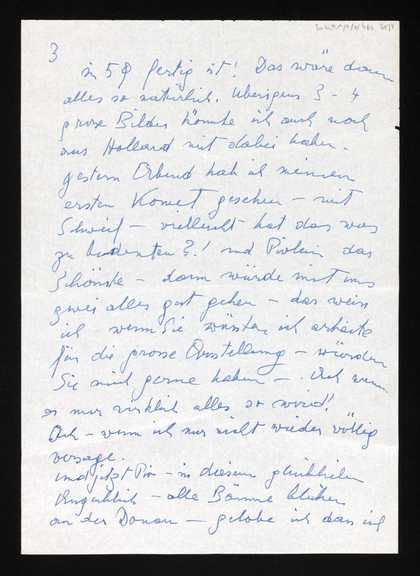 3
in 5 fertig ist! Das wäre dann
alles so natürlich. Uberigens 3 - 4
grosse Bilder könnte ich auch noch
aus Holland mit dabei haben.
gestern Abend hab ich meinen
ersten Komet gesehen – mit
Schweif – vielleicht hat das was
zu bedeuten?! und das
Schönste – dann würde mit uns
zwei alles gut gehen – das weiss
ich – wenn Sie wüssten, ich arbeite
für die grosse Ausstellung – würden
Sie mich gerne haben –. Ach wenn
es nur wirklich alles so wird!
Ach – wenn ich nur nicht wieder völlig
versage.
und jetzt – in diesem glücklichen
Augenblick – alle Bäume blühen
an der Donau – gelobe ich dass ich